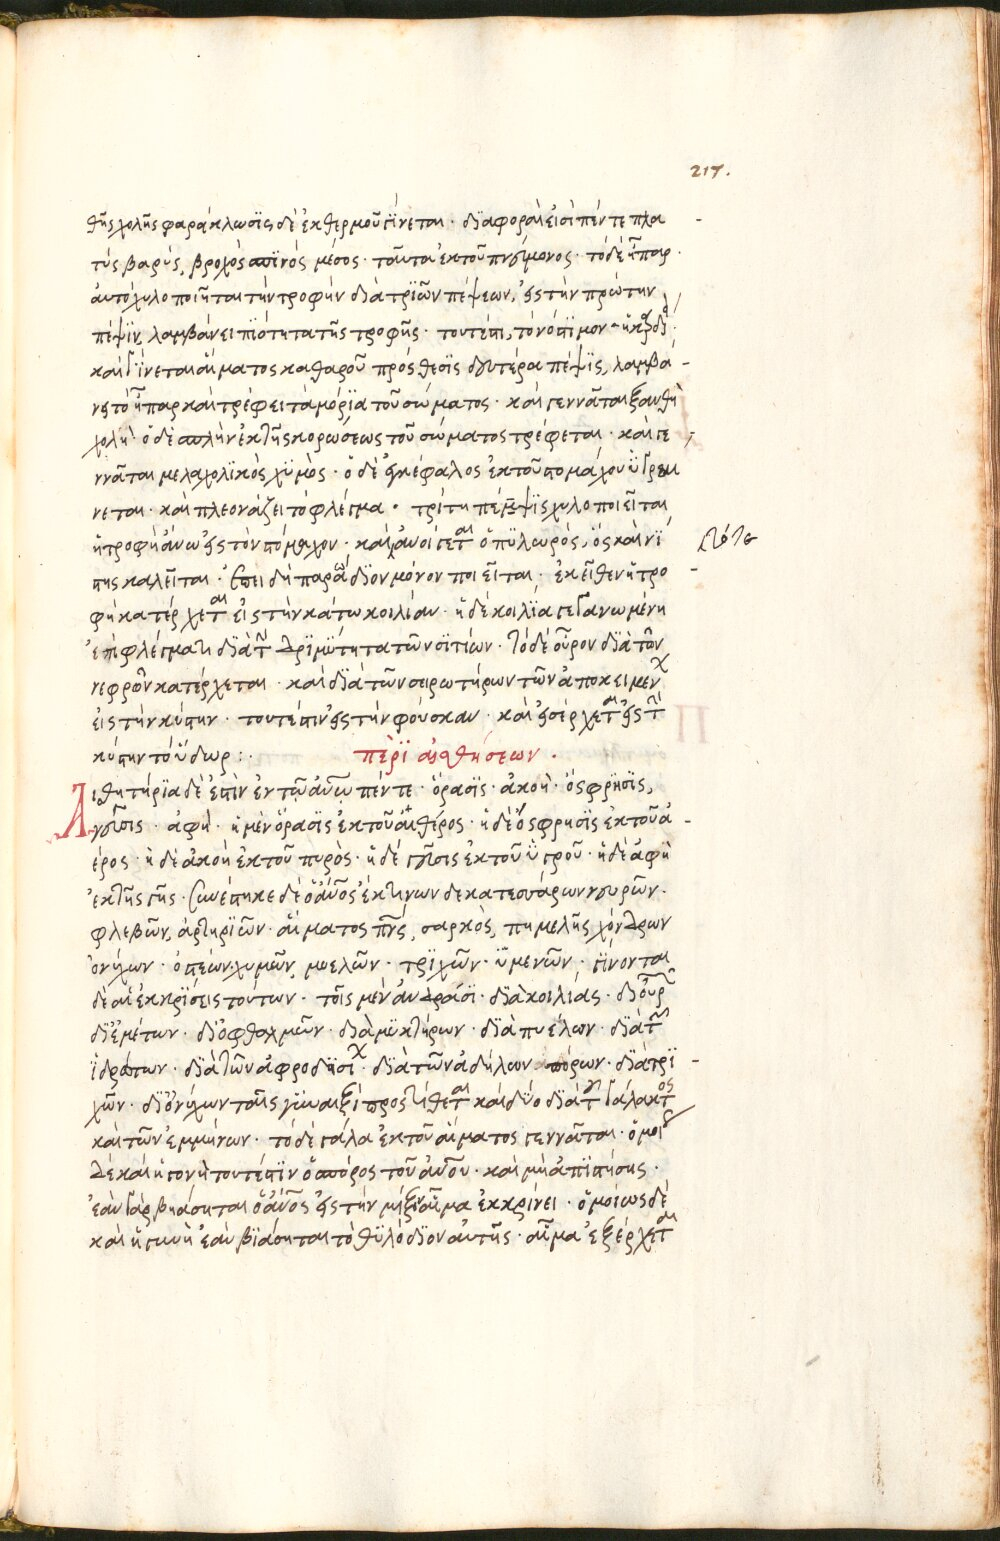 217.
θῆς χολῆς φαράκλωσϊς δὲ ἐκ θερμοῦ γίνεται · δϊαφοραὶ εἰσὶ πέντε πλα
τὺς βαρύς, βροχὸς πϊνός μέσος · ταῦτα ἐκ τοῦ πνεύμονος · τὸ δὲ ἧπαρ ·
αὐτόχυλο ποιῆται τὴν τροφὴν διὰ τρϊῶν πέψεων, εἰς τὴν πρώτην
πέψϊν, λαμβάνει πϊότητα τῆς τροφῆς · τουτέστι, τὸ νόστϊμον ἡ καρδί
καὶ γίνεται αἵματος καθαροῦ πρόσθεσϊς δευτέρα πέψϊς, λαμβά
νει τὸ ἧπαρ καὶ τρέφει τὰ μόρϊα τοῦ σώματος · καὶ γεννᾶται ξανθὴ
χολὴ · ὁ δὲ σπλὴν ἐκ τῆς κορώσεως τοῦ σώματος τρέφεται · καὶ γε
ννᾶται μελαχολϊκὸς χϋμὸς · ὁ δὲ ἐγκέφαλος ἐκ τοῦ στομάχου ὑγραι
νεται · καὶ πλεονάζει τὸ φλέγμα · τρίτη πέμψϊς χυλοποιεῖται
ἡ τροφὴ ἄνω εἰς τὸν στόμαχον · καὶ ἀνοίγεται ὁ πϋλωρὸς, ὃς καὶ νῆ
στης καλεῖται · ἐπειδὴ παράδϊον μόνον ποιεῖται · ἐκεῖθεν ἡ τρο
φὴ κατέρχεται εἰς τὴν κάτω κοιλίαν · ἡ δὲ κοιλϊα γεγανωμένη
ἐπὶ φλέγματι δϊὰ τ δρϊμϋτητα τῶν σϊτίων · τὸ δὲ οὖρον δϊὰ τῶν
νεφρῶν κατέρχεται · καὶ δϊὰ τῶν σειρωτήρων τῶν ἀποκειμέν
εἰς τὴν κύστην · τουτέστιν εἰς τὴν φούσκαν · καὶ εἰσέρχεται εἰς τ
κύστην τὸ ὕδωρ :·
πὲρϊ αἰσθήσεων ·
Αἰθητήρϊα δὲ ἐστὶν ἐν τῷ ἀνῳ πέντε · ὅρασϊς · ἀκοὴ · ὀσφρησϊς,
γεῦσις · ἀφὴ · ἡ μὲν ὅρασϊς ἐκ τοῦ αἰθέρος · ἡ δὲ ὄσφρησϊς ἐκ τοῦ ἀ
έρος · ἡ δὲ ἀκοὴ ἐκ τοῦ πυρὸς · ἡ δὲ γεῦσις ἐκ τοῦ ὑγροῦ · ἡ δὲ ἀφὴ
ἐκ τῆς γῆς · Συνέστηκε δὲ ὁ ἄνος ἐκ τηνων δεκατεσσάρων νευρῶν ·
φλεβῶν, ἀρτηρϊῶν · αἵματος πνς, σαρκὸς, πημελῆς χόνδρων
ὀνύχων · ὀστέων, χυμῶν, μυελῶν · τρϊχῶν · ὑμενῶν · γίνονται
δὲ αἱ ἐκκρϊσεις τούτων · τοῖς μὲν ἀνδράσϊ · δϊὰ κοιλίας · δϊ οὔρ
δϊ ἐμέτων · δϊ ὀφθαλμῶν · δϊὰ μϋκτήρων · δϊὰ πυέλων · δϊὰ τ
ἱδρώτων · δϊὰ τῶν ἀφροδησι · δϊὰ τῶν ἀδήλων πόρων · δϊὰ τρϊ
χῶν · δϊ ὀνύχων ταῖς γυναιξὶ προστίθεται καὶ δύο δϊὰ τ γάλακτος
καὶ τῶν ἐμμήνων · τὸ δὲ γάλα ἐκ τοῦ αἵματος γεννᾶται · ὁμοί
δὲ καὶ ἡ γονὴ τουτέστϊν ὁ σπόρος τοῦ ἀνου · καὶ μὴ ἀπϊστήσης ·
ἐὰν γὰρ βηάσηται ὁ ἄνος εἰς τὴν μῆξϊν αἷμα ἐκκρίνει · ὁμοίως δὲ
καὶ ἡ γυνὴ ἐὰν βϊάσηται τὸ θϋλόδϊον αὐτῆς · αἷμα ἐξέρχεται